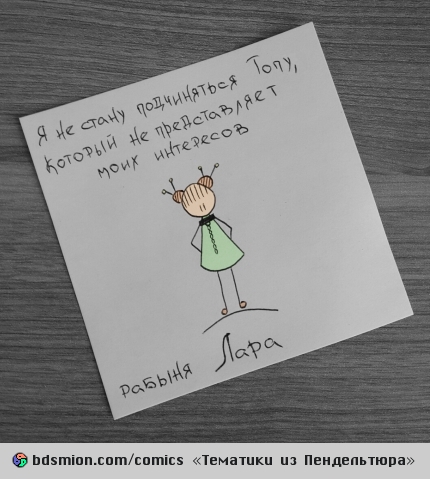 Я не стану подчиняться Топу,
который не представляет
моих интересов
рабыня Лара
bdsmion.com/comics «Тематики из Пендельтюра»